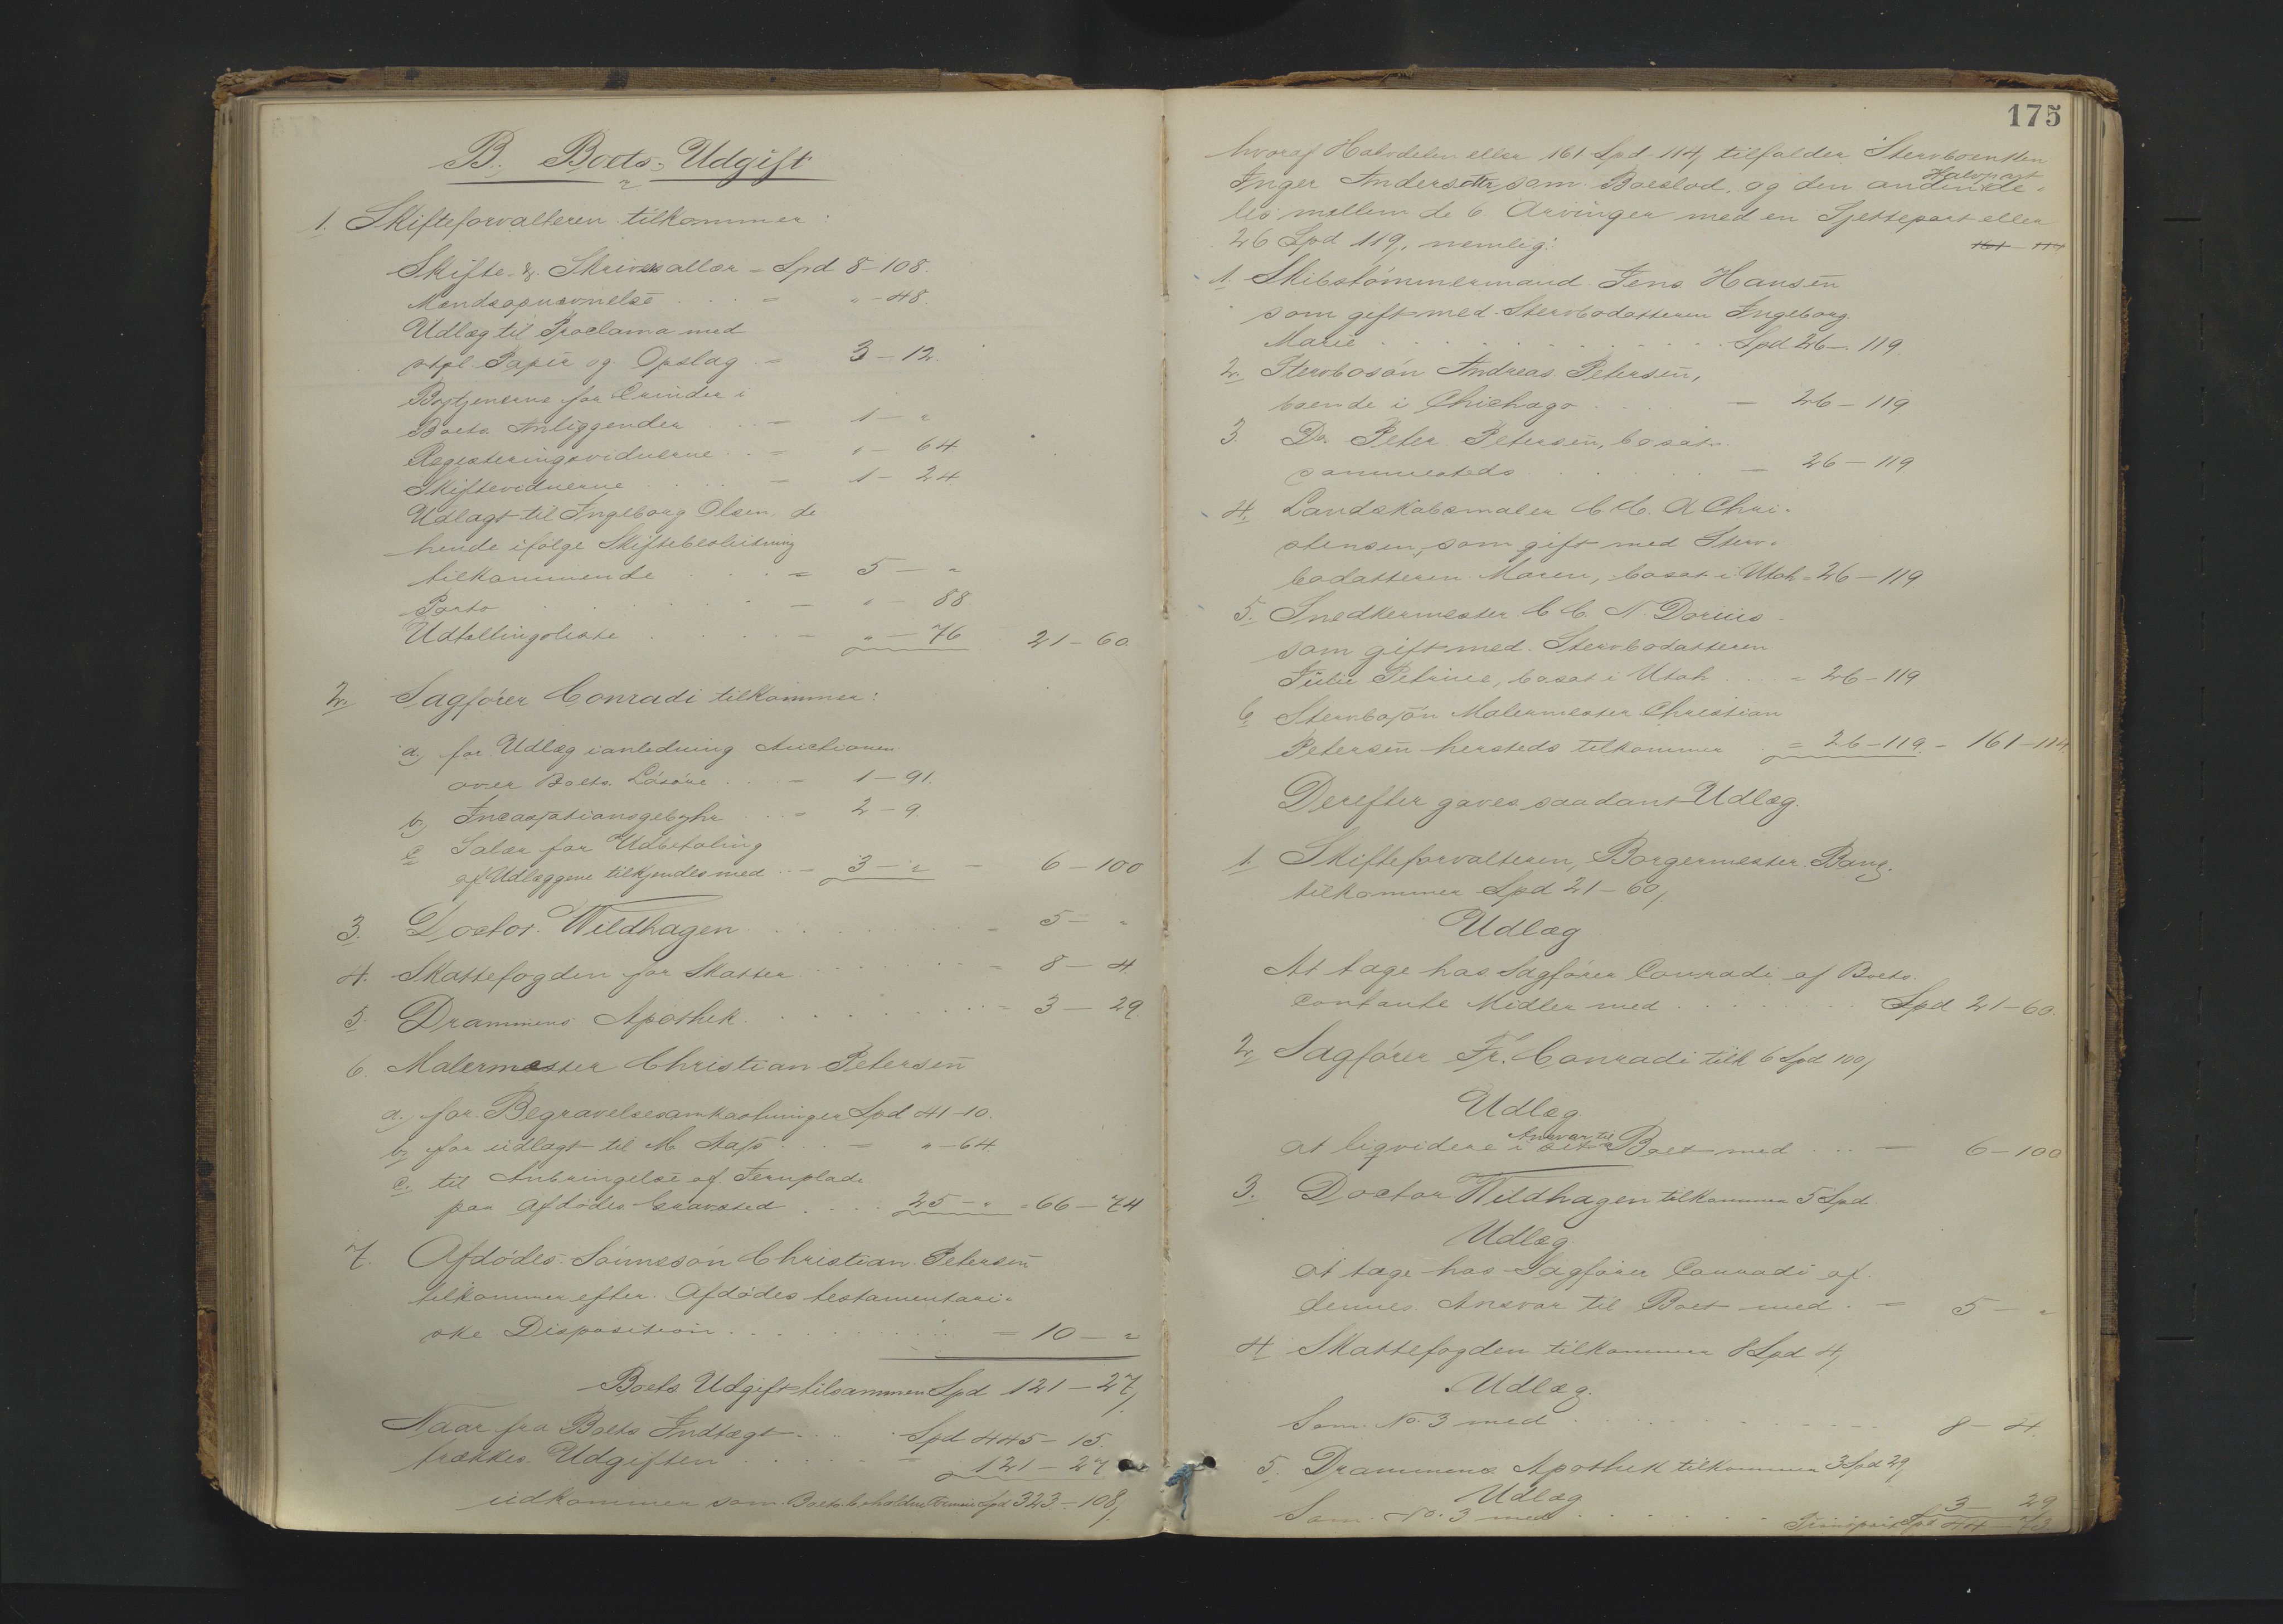 B. Boets Udgift
1. Skifteforvalteren tilkommer:
Skifte- & Skriversallær = Spd 8-108.
Mændsopnævnelse . . . = " - 48.
Udlæg til Proclama med
stpl. Papir og Opslag = 3 - 12.
Bytjenerne for Erinder i
Boets Anliggender . . = 1 - "
Registeringsvidnerne . . = " - 64
Skiftevidnerne . . . = 1 - 24
Udlagt til Ingeborg Olsen, de
hende ifølge Skiftebeslutning
tilkommende . . . = 5 - "
Porto . . . . = " - 88
Udtællingsliste . . . . = " - 76 21 - 60
2. Sagfører Conradi tilkommer:
a, for Udlæg ianledning Auctionen
over Boets Løsøre . . . = 1 - 91.
b, Incassationsgebyhr . . . = 2 - 9.
c Salær for Udbetaling
af Udlæggene tilkjendes med . . = 3 - " = 6 - 100
3. Doctor Wildhagen . . . . . = 5 - "
4. Skattefogden for Skatter . . . . . = 8 - 4
5. Drammens Apothek . . . . . = 3 - 29
6. Malermester Christian Petersen
a., for Begravelsesomkostninger Spd 41-10.
b, for udlagt til M. Aass . . . = " - 64
c. til Anbringelse af Jernplade
paa Afdødes Gravsted . . . . 25 - " = 66 - 74
7. Afdødes Sønnesøn Christian Petersen
tilkommer efter Afdødes testamentari-
ske Disposition . . . . . = 10 - "
Boets Udgift tilsammen Spd 121 - 27,
Naar fra Boets Indtægt . . . . Spd 445 - 15.
trækkes Udgiften . . . . = 121 - 27
udkommer som Boets beholdne Formue Spd 323 - 108,
175
hvoraf Halvdelen eller 161 Spd 114, tilfalder Stervboenken
Inger Andersdtr, som Boeslod, og den anden Halvpart de-
les mellem de 6 Arvinger med en Sjettepart eller
26 Spd 119, nemlig: 161 - 114
1. Skibstømmermand Jens Hansen
som gift med Stervbodatteren Ingeborg
Marie . . . . . . Spd 26 - 119.
2. Stervbosøn Andreas Petersen,
boende i Chichago . . . . = 26 - 119
3. Do. Peter Petersen, bosat
sammesteds . . . . = 26 - 119
4. Landskabsmaler C. C. A Chri-
stensen, som gift med Sterv-
bodatteren Maren, bosat i Utah = 26 - 119
5. Snedkermester C. C. N. Dorius
som gift med Stervbodatteren
Julie Petrine, bosat i Utah . = 26 - 119
6 Stervbosøn Malermester Christian
Petersen hersteds tilkommer . = 26 - 119. = 161 - 114
Derefter gaves saadant Udlæg.
1. Skifteforvalteren, Borgermester Bang
tilkommer Spd 21 - 60,
Udlæg
At tage hos Sagfører Conradi af Boets
contante Midler med . . . . Spd 21 - 60.
2, Sagfører Fr. Conradi tilk 6 Spd 100,
Udlæg
at liqvidere i Ansvar til Boet med . . . = 6 - 100
3. Doctor Wildhagen tilkommer 5 Spd
Udlæg
at tage hos Sagfører Conradi af
dennes Ansvar til Boet med . = 5 - "
4 Skattefogden tilkommer 8 Spd 4,
Udlæg.
Som No. 3 med . . . . . 8 - 4.
5. Drammens Apothek tilkommer 3 Spd 29,
Udlæg
Som No. 3 med . . . . . 3 - 29
Transport Spd 44 - 73